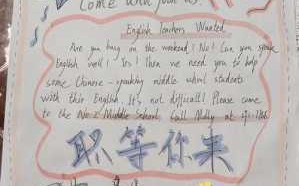 Come and join us!
English Teachers Wanted
Are you busy on the weekend? No! Can you speak
English well? Yes! Then we need you to help
some Chinese-speaking middle school students
with this English. It's not difficult! Please come
to the No.2 Middle School. Call Molly at
职等你来